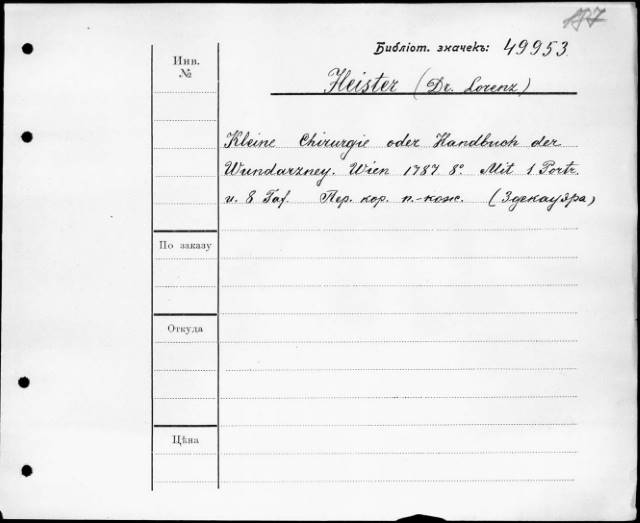 197
Библіот. значекъ: 49953
Инв.
№
Heister (Dr. Lorenz)
Kleine Chirurgie oder Handbuch der
Wundarzney. Wien 1787 8°. Mit 1 Portr.
u. 8 Taf. Пер. кор. п.-кож. (Здекауэра)
По заказу
Откуда
Цѣна